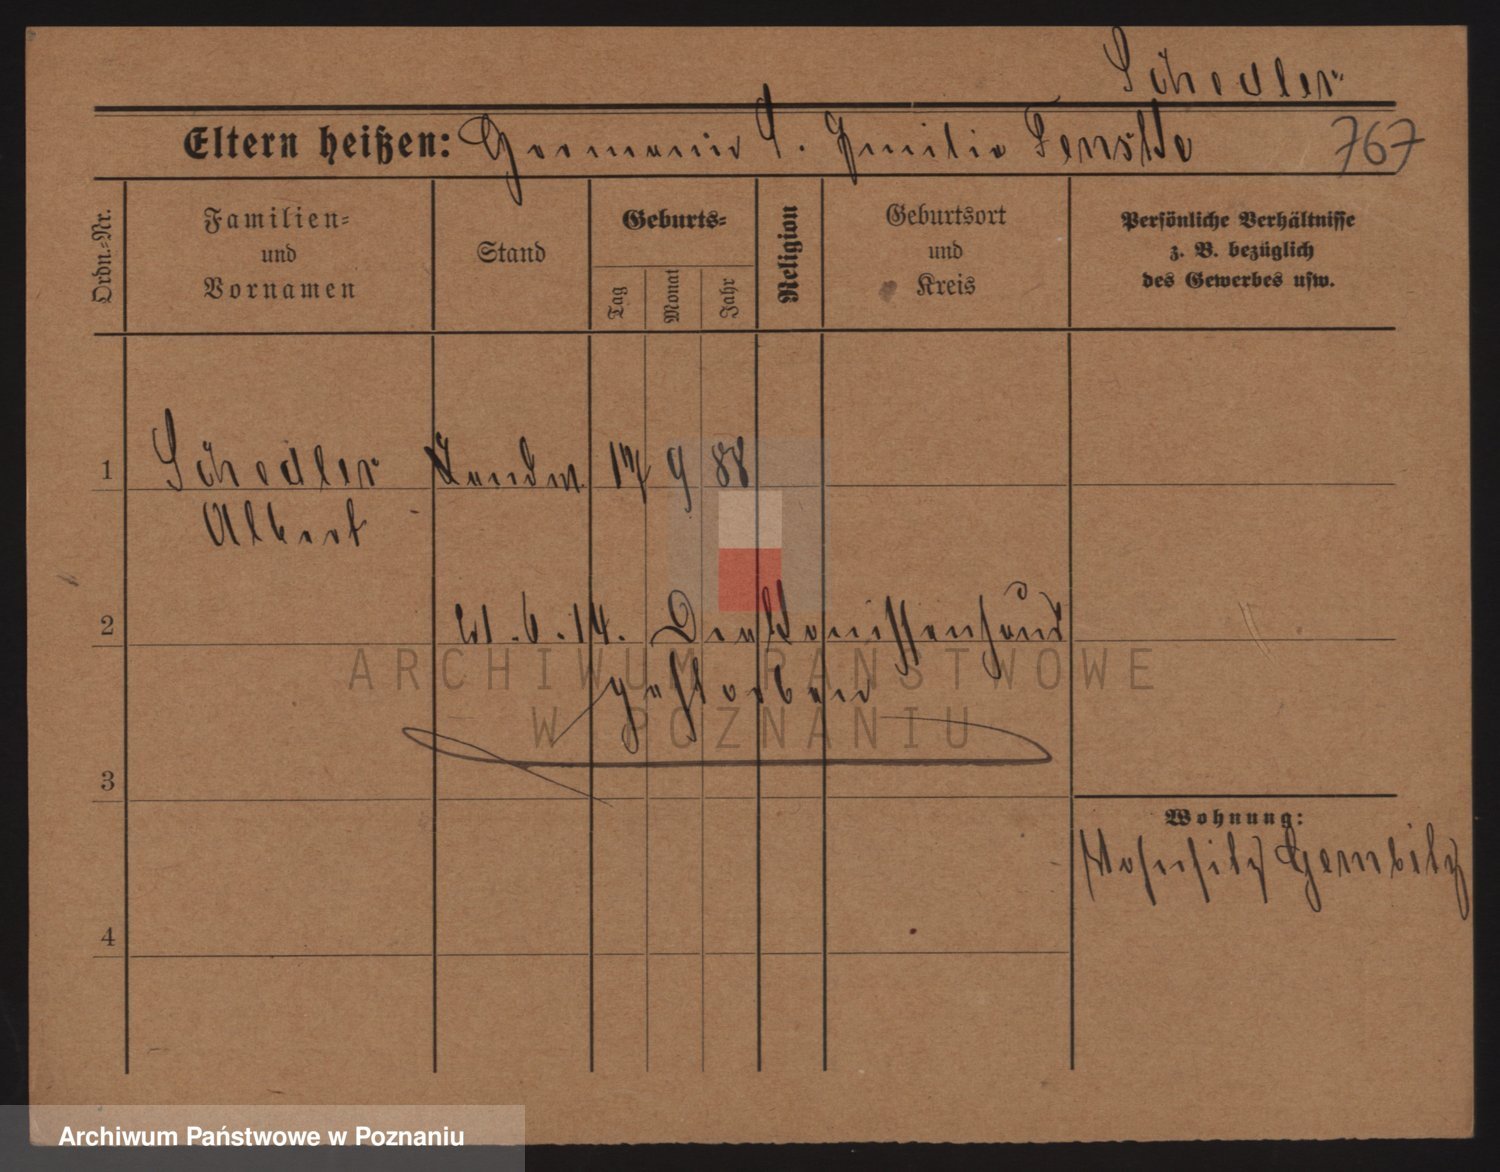 Schedler
Eltern heißen: Hermann S. Emilie Fenske
767
Ordn.-Nr.
Familien- und Vornamen
Stand
Geburts-
Tag
Monat
Jahr
Religion
Geburtsort und Kreis
Persönliche Verhältnisse
z. B. bezüglich
des Gewerbes usw.
1 Schedler Landw. 17 9 88
Albert
2 6. 14. Diakonissenhaus
gestorben
ARCHIWUM PAŃSTWOWE
W POZNANIU
3
Wohnung:
Wohnsitz Gembitz
4
Archiwum Państwowe w Poznaniu